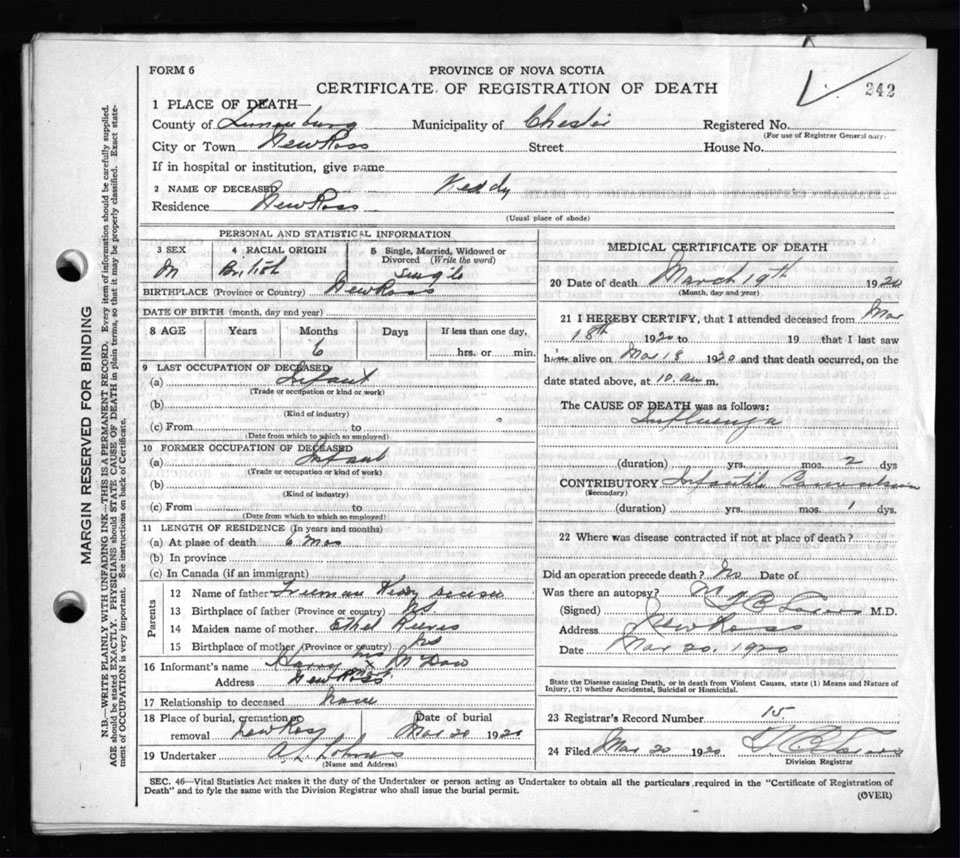 FORM 6
PROVINCE OF NOVA SCOTIA
CERTIFICATE OF REGISTRATION OF DEATH
242
1 PLACE OF DEATH—
County of Lunenburg Municipality of Chester Registered No.
(For use of Registrar General only.
City or Town New Ross Street House No.
If in hospital or institution, give name
2 NAME OF DECEASED Keddy
Residence New Ross
(Usual place of abode)
PERSONAL AND STATISTICAL INFORMATION
3 SEX M
4 RACIAL ORIGIN British
5 Single, Married, Widowed or Divorced (Write the word) Single
BIRTHPLACE (Province or Country) New Ross
DATE OF BIRTH (month, day and year)
8 AGE Years Months Days If less than one day,
6 hrs. or min.
9 LAST OCCUPATION OF DECEASED
(a) Infant
(Trade or occupation or kind or work)
(b)
(Kind of industry)
(c) From to
(Date from which to which so employed)
10 FORMER OCCUPATION OF DECEASED
(a) Infant
(Trade or occupation or kind of work)
(b)
(Kind of industry)
(c) From to
(Date from which to which so employed)
11 LENGTH OF RESIDENCE (In years and months)
(a) At place of death 6 Mos
(b) In province
(c) In Canada (if an immigrant)
Parents
12 Name of father Truman Keddy
13 Birthplace of father (Province or country) NS
14 Maiden name of mother Ethel
15 Birthplace of mother (Province or country) NS
16 Informant's name Harry
Address New Ross
17 Relationship to deceased none
18 Place of burial, cremation, Date of burial
removal New Ross Mar 20 1920
19 Undertaker A. L.
(Name and Address)
MEDICAL CERTIFICATE OF DEATH
20 Date of death March 19th 1920
(Month, day and year)
21 I HEREBY CERTIFY, that I attended deceased from Mar
18th 1920 to 19 that I last saw
him alive on Mar 18 1920 and that death occurred, on the
date stated above, at 10 a.m.
The CAUSE OF DEATH was as follows:
Influenza
(duration) yrs. mos. 2 dys
CONTRIBUTORY Infantile Convulsions
(Secondary)
(duration) yrs. mos. 1 dys.
22 Where was disease contracted if not at place of death?
Did an operation precede death? No Date of
Was there an autopsy? N
(Signed) M.D.
Address New Ross
Date Mar 20, 1920
State the Disease causing Death, or in death from Violent Causes, state (1) Means and Nature of
Injury, (2) whether Accidental, Suicidal or Homicidal.
23 Registrar's Record Number 15
24 Filed Mar 20 1920
Division Registrar
SEC. 46—Vital Statistics Act makes it the duty of the Undertaker or person acting as Undertaker to obtain all the particulars required in the "Certificate of Registration of
Death" and to fyle the same with the Division Registrar who shall issue the burial permit.
(OVER)
MARGIN RESERVED FOR BINDING
N.B.—WRITE PLAINLY WITH UNFADING INK—THIS IS A PERMANENT RECORD. Every item of information should be carefully supplied.
AGE should be stated EXACTLY. PHYSICIANS should STATE CAUSE OF DEATH in plain terms, so that it may be properly classified. Exact state-
ment of OCCUPATION is very important. See instructions on back of Certificate.